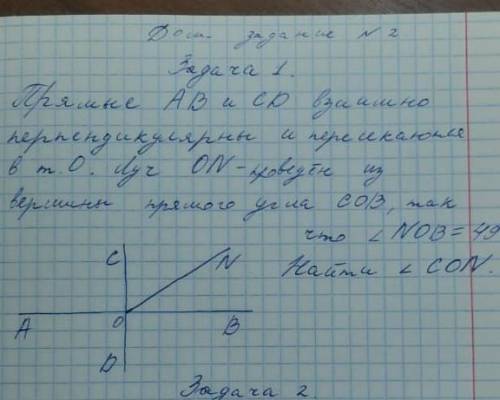 Дом. задание N 2
Задача 1.
Прямые AB и CD взаимно
перпендикулярны и пересекаются
в т.O. Луч ON - проведён из
вершины прямого угла COB, так
что ∠NOB = 49
Найти ∠CON.
C
N
A
O
B
D
Задача 2.